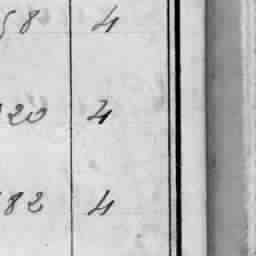 58 4
20 4
82 4